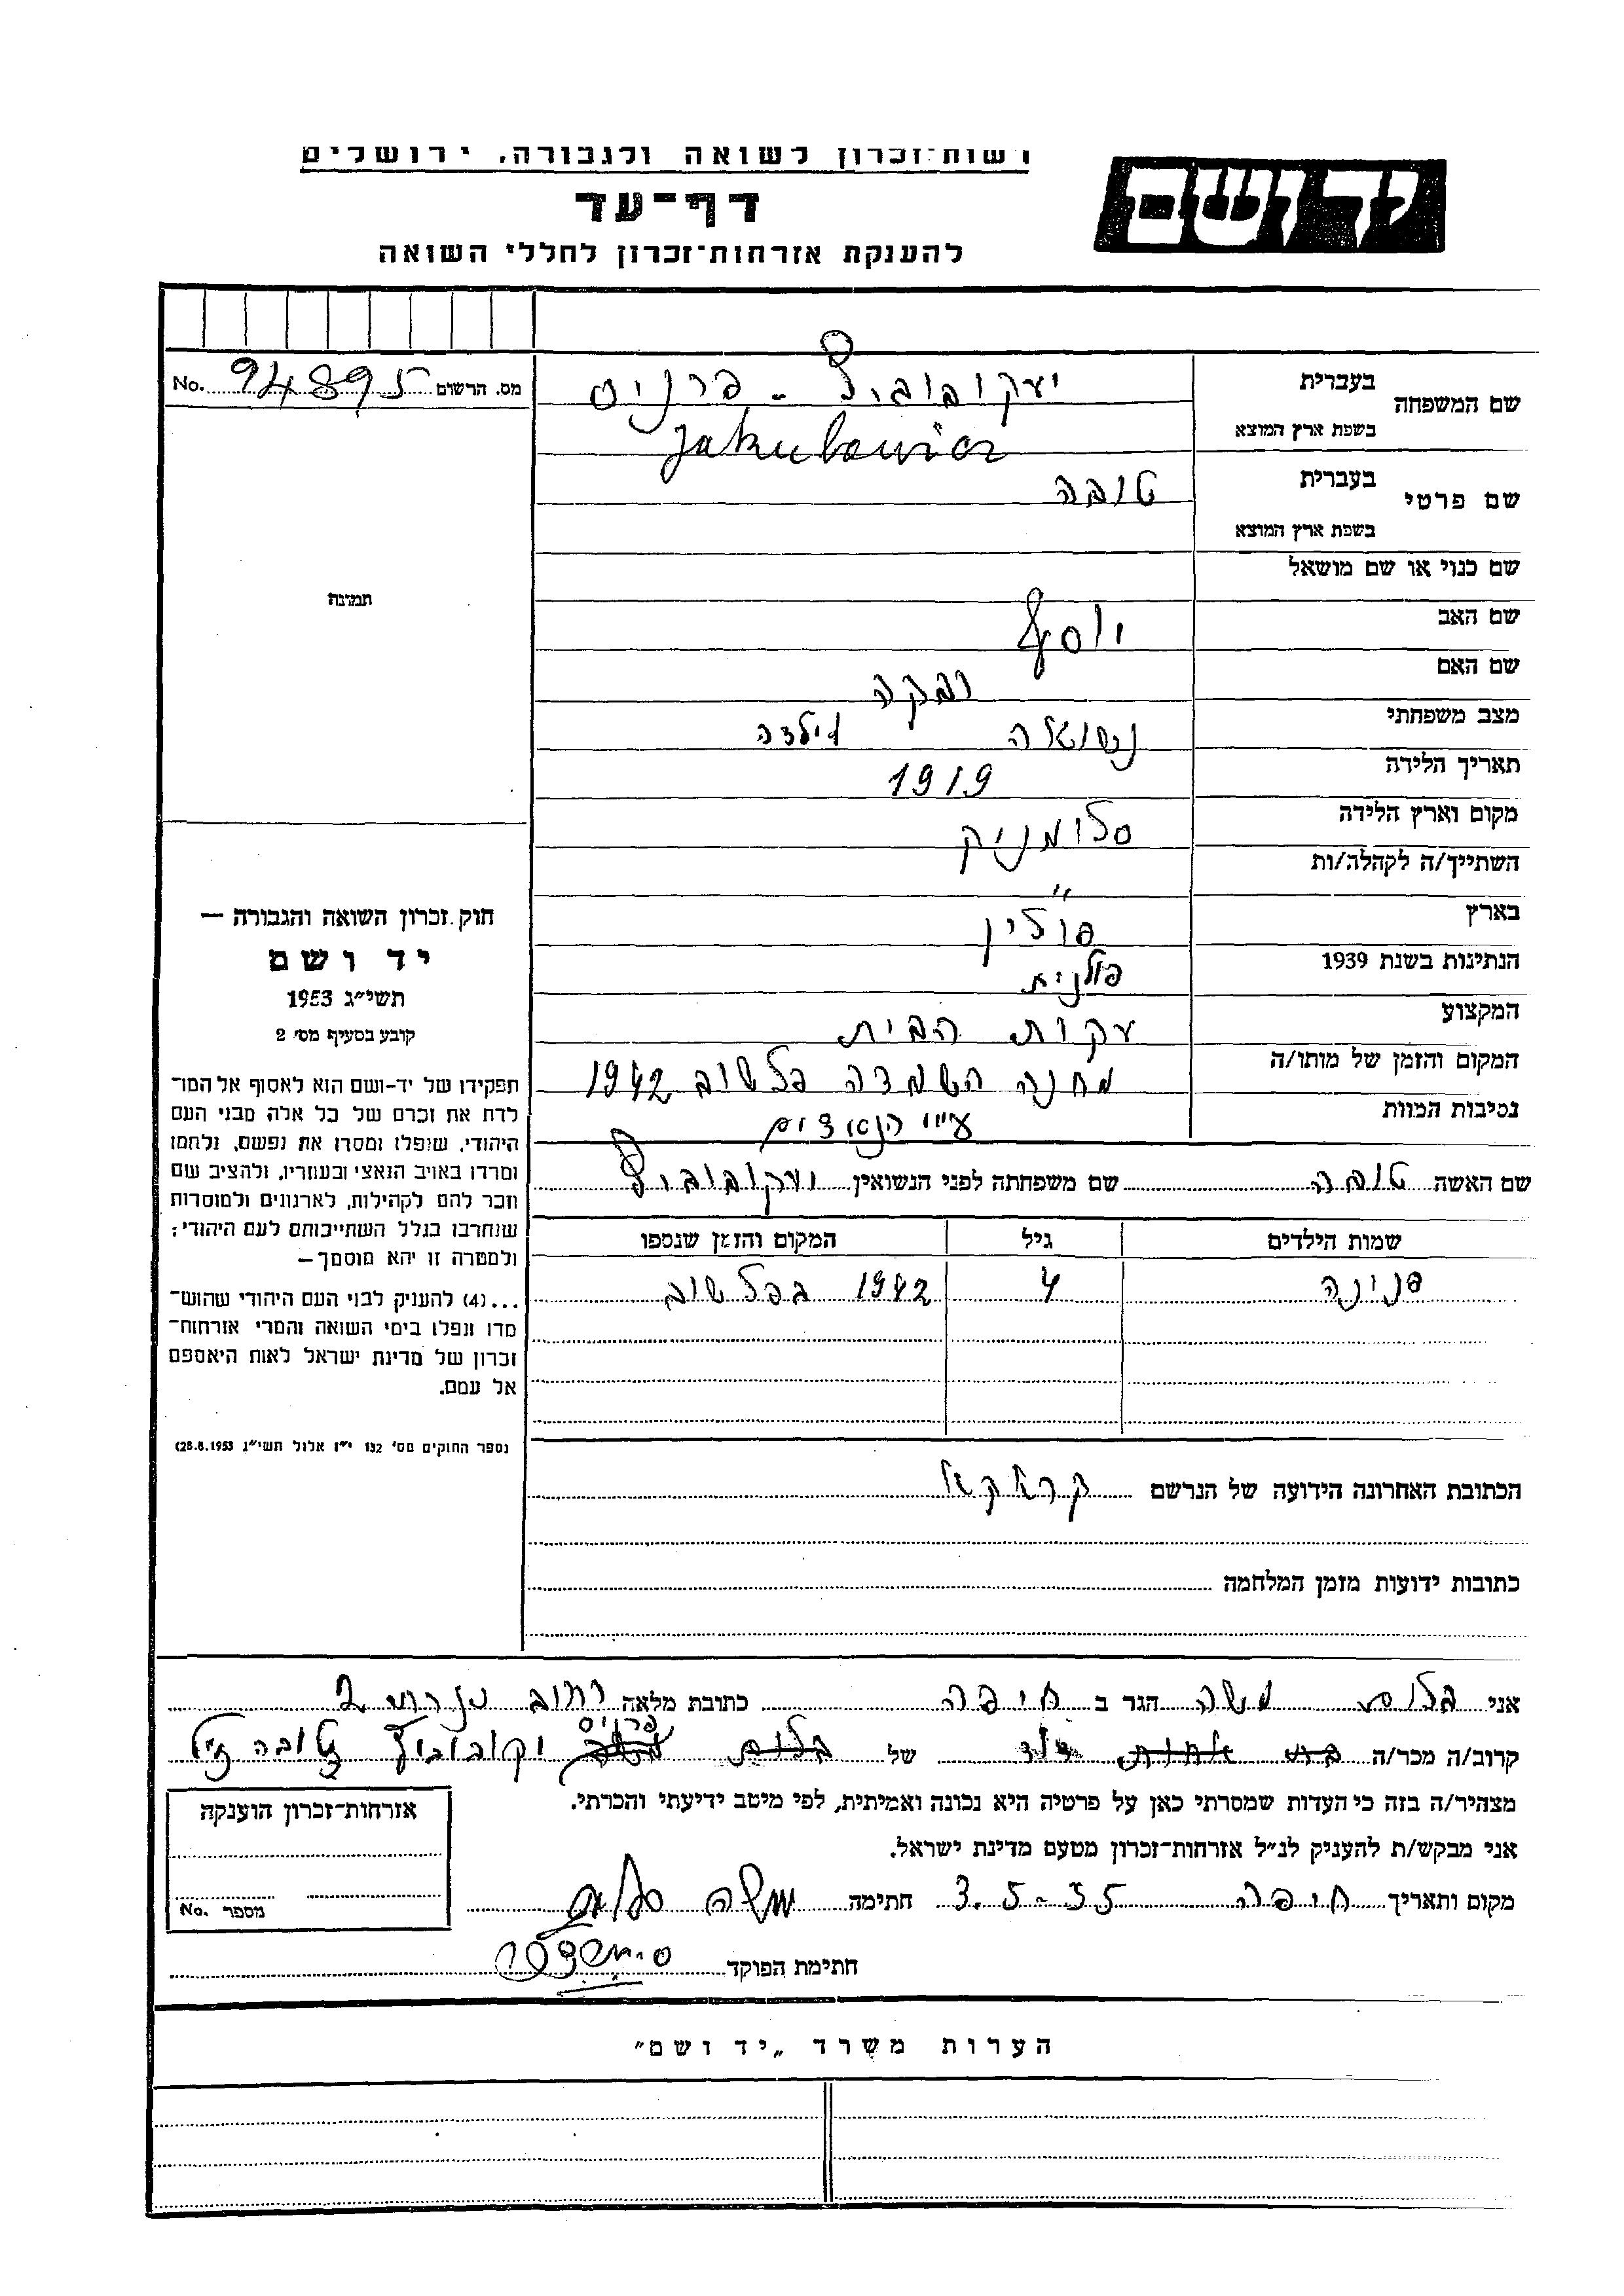 רשות־זכרון לשואה ולגבורה, ירושלים
יד ושם
דף־עד
להענקת אזרחות־זכרון לחללי השואה
מס. הרשום 94895 No.
שם המשפחה בעברית יעקובוביץ - פרניס
בשפת ארץ המוצא Jakubowicz
שם פרטי בעברית טובה
בשפת ארץ המוצא
שם כנוי או שם מושאל
שם האב יוסף
שם האם רבקה
מצב משפחתי נשואה וילדה
תאריך הלידה 1919
מקום וארץ הלידה סלומניק
השתייך/ה לקהלה/ות "
בארץ פולין
הנתינות בשנת 1939 פולנית
המקצוע עקרת הבית
המקום והזמן של מותו/ה מחנה השמדה פלשוב 1942
נסיבות המוות ע"י הנאצים
שם האשה טובה שם משפחתה לפני הנשואין יעקובוביץ
שמות הילדים גיל המקום והזמן שנספו
פנינה 4 1942 בפלשוב
הכתובת האחרונה הידועה של הנרשם קראקא
כתובות ידועות מזמן המלחמה
תמונה
חוק זכרון השואה והגבורה —
יד ושם
תשי״ג 1953
קובע בסעיף מס׳ 2
תפקידו של יד־ושם הוא לאסוף אל המו־
לדת את זכרם של כל אלה מבני העם
היהודי, שנפלו ומסרו את נפשם, נלחמו
ומרדו באויב הנאצי ובעוזריו, ולהציב שם
וזכר להם לקהילות, לארגונים ולמוסדות
שנחרבו בגלל השתייכותם לעם היהודי;
ולמטרה זו יהא מוסמך —
...(4) להעניק לבני העם היהודי שהוש־
מדו ונפלו בימי השואה והמרי אזרחות־
זכרון של מדינת ישראל לאות היאספם
אל עמם.
(ספר החוקים מס׳ 132 י״ז אלול תשי״ג 28.8.1953)
אני בלום משה הגר ב חיפה כתובת מלאה רחוב 2
קרוב/ה מכר/ה של בלום פרניס יקובוביץ טובה ז"ל
מצהיר/ה בזה כי העדות שמסרתי כאן על פרטיה היא נכונה ואמיתית, לפי מיטב ידיעתי והכרתי.
אני מבקש/ת להעניק לנ״ל אזרחות־זכרון מטעם מדינת ישראל.
מקום ותאריך חיפה 3.5-55 חתימה משה בלום
חתימת הפוקד
אזרחות־זכרון הוענקה
מספר No.
הערות משרד „יד ושם״